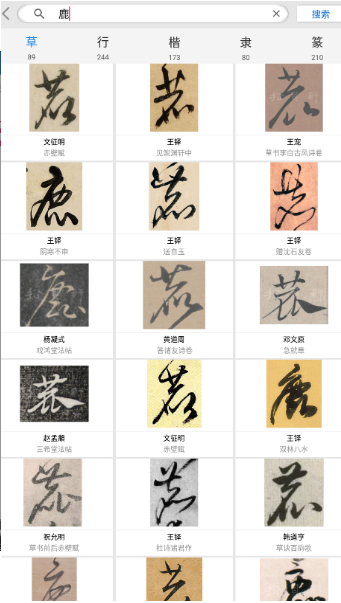 鹿 搜索
草 行 楷 隶 篆
89 244 173 80 210
文征明 王铎 王宠
赤壁赋 草书李白古风诗卷
王铎 王铎 王铎
阴寒不审 送自玉 赠沈石友卷
杨凝式 黄道周 邓文原
戏鸿堂法帖 答诸友诗卷 急就章
赵孟頫 文征明 王铎
三希堂法帖 赤壁赋 双林八水
祝允明 王铎 韩道亨
草书前后赤壁赋 杜诗诸君作 草诀百韵歌